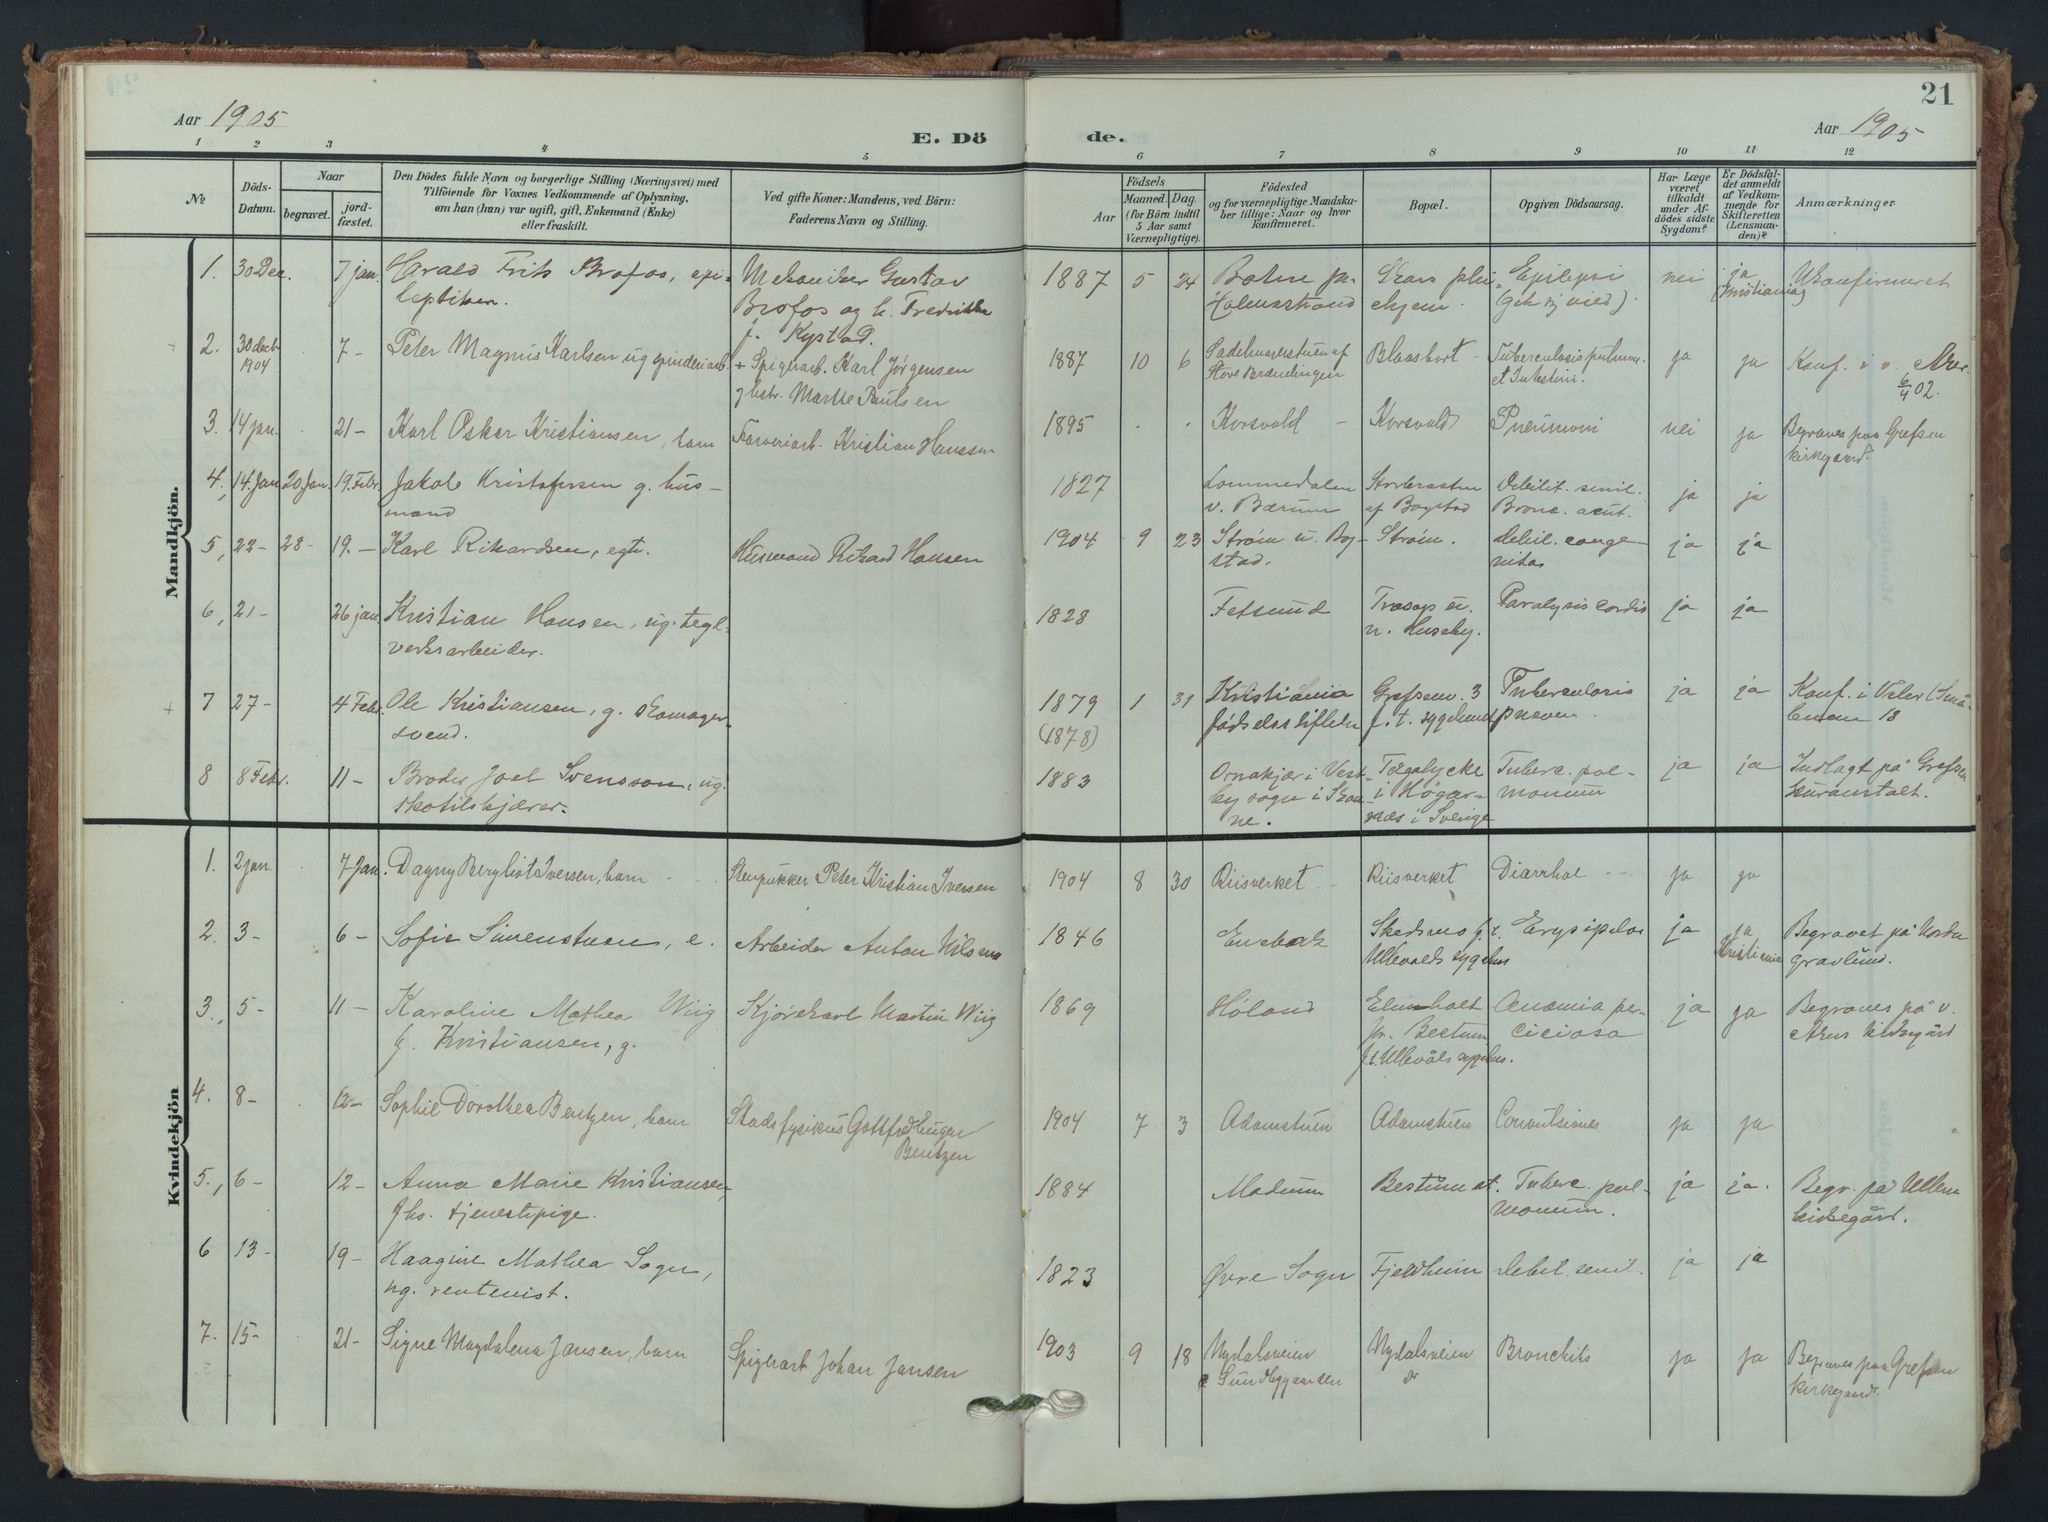 21
Aar 1905
E. Dö
de.
Aar 1905
1 2 3 4 5 6 7 8 9 10 11 12
№
Döds-
Datum.
Naar
begravet.
jord-
fæstet.
Den Dödes fulde Navn og borgerlige Stilling (Næringsvei) med
Tilföiende for Voxnes Vedkommende af Oplysning,
om han (hun) var ugift, gift, Enkemand (Enke)
eller fraskilt.
Ved gifte Koner: Mandens, ved Börn:
Faderens Navn og Stilling.
Födsels
Aar
Maaned. Dag.
(for Börn indtil
5 Aar samt
Værnepligtige).
Födested
og for værnepligtige Mandska-
ber tillige: Naar og hvor
konfirmeret.
Bopæl.
Opgiven Dödsaarsag.
Har Læge
været
tilkaldt
under Af-
dödes sidste
Sygdom?
Er Dödsfal-
det anmeldt
af Vedkom-
mende for
Skifteretten
(Lensman-
den)?
Anmærkninger
Mandkjön.
1. 30 Dec. 7 jan. Harald Frits Brofos, epi-
leptiker.
Mekaniker Gustav
Brofos og h. Fredrikke
f. Kystad.
1887 5 24
Botne pr.
Holmestrand
Skars plei-
ehjem.
Epilepsi
(gik sj. vied).
nei
ja
(Kristiania)
Ukonfirmeret
2. 30 dec
1904
7 – Peter Magnus Karlsen ug spinderiarb.
+ Spigerarb. Karl Jørgensen
g hstr. Marthe Paulsen
1887 10 6
Sadelmagerstuen af
Store Brændingen
Blaasbort –
Tuberculosis pulmon.
et Intestini.
ja ja
Konf. i v. Aker
6/4 02.
3. 14 jan. 21 – Karl Oskar Kristiansen, barn
Farveriarb. Kristian Hanssen
1895 . .
Korsvold – Korsvold
Pneumoni
nei ja
Begraves paa Grefsen
kirkegaard.
4. 14 Jan 20 Jan. 19. Febr. Jakob Kristofersen g. hus-
mand
1827
Lommedalen
v. Bærum
Storbraaten
af Bogstad
Debilit. senil.
Bronc. acut.
ja ja
5. 22 – 28 – 19. – Karl Rikardsen, egte.
Husmand Rikard Hansen
1904 9 23
Strøm u. Bog-
stad.
Strøm.
Debil. conge-
nitas
ja ja
6. 21 – 26 jan. Kristian Hansen, ug. tegl-
verksarbeider.
1828
Fetsund
Træsop u.
n. Huseby.
Paralysis cordis
ja ja
7 27 – 4 Febr. Ole Kristiansen, g. skomager-
svend.
1879
(1878)
1 31
Kristiania
fødselsstiftelse
Grefsenv. 3
f. t. sygehuset
Tuberculosis
pneum.
ja ja
Konf. i Våler (Små-
lenene 18
8 8 Febr. 11 – Broder Joel Svensson, ug.
skotilskjærer.
1883
Ornakjær i Vest-
by sogn i Skaa-
ne.
Tågalycke
i Högar-
näs i Sverige
Tuberc. pul-
monum
ja ja
Indlagt på Grefsen
kuranstalt.
Kvindekjön
1. 2 jan 7 Jan. Dagny Bergliot Iversen, barn
Stenpukker Peter Kristian Iversen
1904 8 30
Riisverket Riisverket
Diarrhoe
ja ja
2. 3 – 6 – Sofie Simenstuen, e.
Arbeider Anton Nilsen
1846
Enebak
Skedsmo f. t.
Ullevolds sygehus
Erysipelas
ja
ja
Kristiania
Begravet på Nordre
gravlund.
3. 5 – 11 – Karoline Mathea Wiig
f. Kristiansen, g.
Kjørekarl Martin Wiig
1869
Høland
Elmholt
pr. Bestum
f. t. Ullevåls sygehus.
Anæmia per-
ciciosa
ja ja
Begraves på v.
Akers kirkegård
4. 8 – 12 – Sophie Dorothea Bentzen, barn
Stadsfysikus Gottfred Eugen
Bentzen
1904 7 3
Adamstuen Adamstuen
Convulsiones
ja ja
5. 6 – 12 – Anna Marie Kristiansen,
fhs. tjenestepige.
1884
Modum
Bestum st.
Tuberc. pul-
monum.
ja ja.
Begr. på Ullern
kirkegård.
6 13 – 19 – Haagine Mathea Sogn,
ug. rentenist.
1823
Øvre Sogn
Fjeldheim
Debil. senil.
ja ja
7. 15 – 21 – Signe Magdalena Jansen, barn
Spigerarb Johan Jansen
1903 9 18
Nydalsveien
Sundbyggaarden
Nydalsveien
Do
Bronchitis
ja ja
Begraves paa Grefsen
kirkegaard.